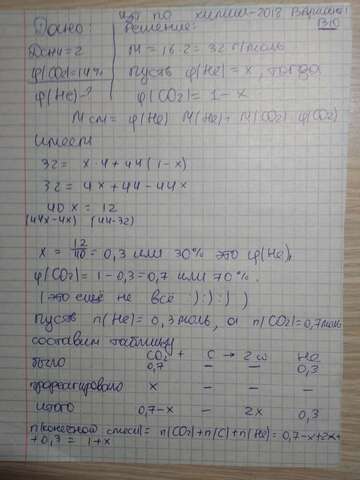 цт по химии-2018 Вариант 1
Дано: Решение: B10
Dсм=2 M = 16·2 = 32 г/моль
φ(CO2)=14% пусть φ(He)=x, тогда
φ(He)-? φ(CO2)= 1-x
Mсм= φ(He)·M(He)+M(CO2)·φ(CO2)
имеем
32 = x·4+44(1-x)
32 = 4x+44-44x
40x = 12
(44x-4x) (44-32)
x = 12/40 = 0,3 или 30% это φ(He),
φ(CO2)=1-0,3=0,7 или 70%.
(это ещё не все :):):)
пусть n(He)=0,3 моль, а n(CO2)=0,7моль
составим таблицу
CO2 + C → 2CO He
было 0,7 — — 0,3
прореагировало x — — —
итого 0,7-x — 2x 0,3
n(конечной смеси)= n(CO2)+n(C)+n(He)=0,7-x+2x+
+0,3 = 1+x